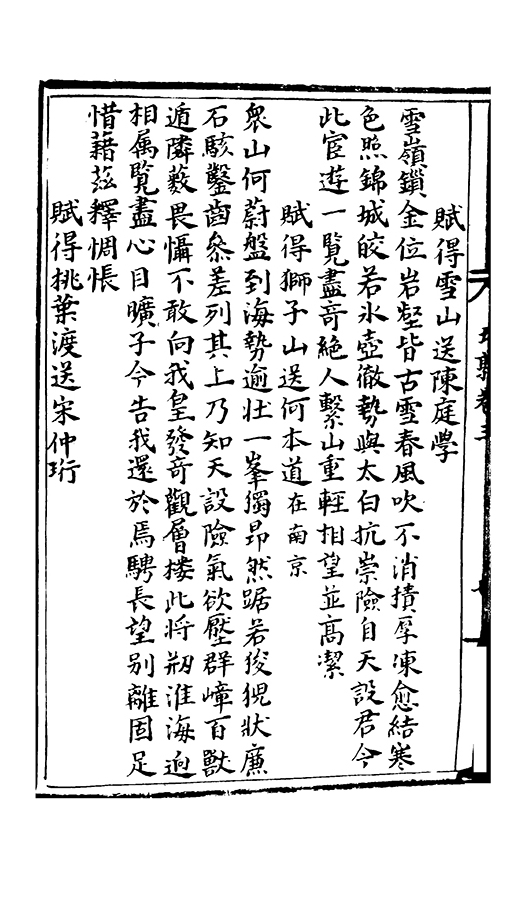 賦得雪山送陳庭學
雪嶺鎖金位岩壑皆古雪春風吹不消積厚凍愈結寒
色照錦城皎若氷壺徹勢與太白抗崇險自天設君今
此宦遊一覽盡竒絕人繫山重輕相望並髙潔
賦得獅子山送何本道在南京
衆山何蔚盤到海勢逾壯一峯獨昂然踞若狻猊狀廉
石駭鑿齒叅差列其上乃知天設險氣欲壓群嶂百獸
遁隣藪畏懾不敢向我皇發竒觀層搂此將刱淮海迥
相属覽盡心目曠子今告我還於焉騁長望别離固足
惜藉兹釋惆悵
賦得挑葉渡送宋仲珩
卷三